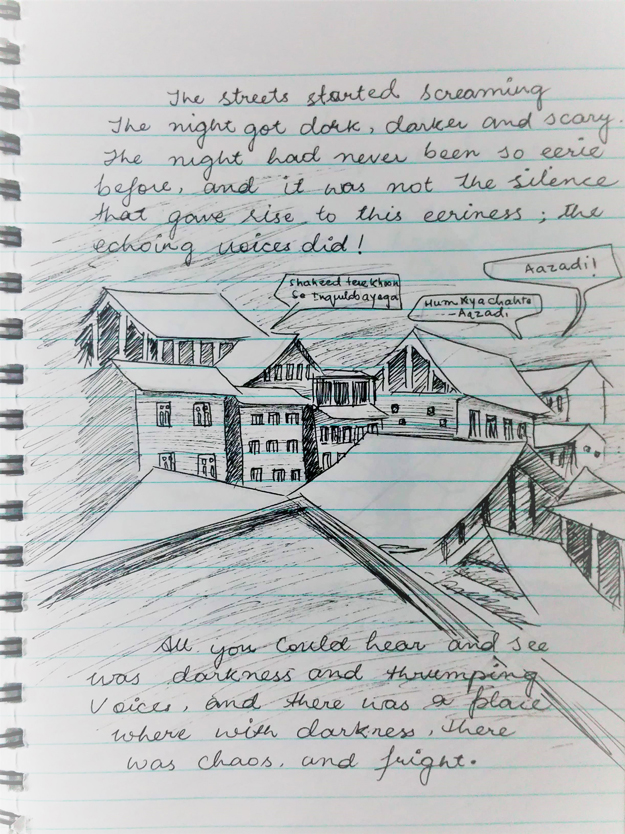 The streets started screaming
The night got dark, darker and scary.
The night had never been so eerie
before, and it was not the silence
that gave rise to this eeriness ; the
echoing voices did!
Aazadi!
Shaheed tere khoon
Se Inquilab ayega
Hum Kya chahte
-Aazadi
All you could hear and see
was darkness and thrumping
Voices, and there was a place
where with darkness, there
was chaos, and fright.